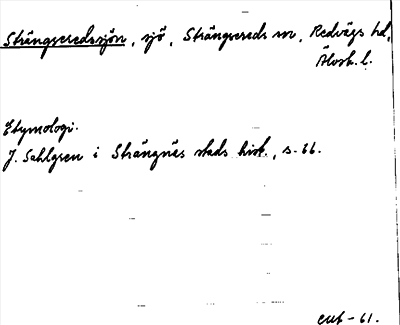 Strängseredssjön, sjö, Strängsereds sn, Redvägs hd,
Älvsb. l.
Etymologi.
J. Sahlgren i Strängnäs stads hist., s. 66.
-61.